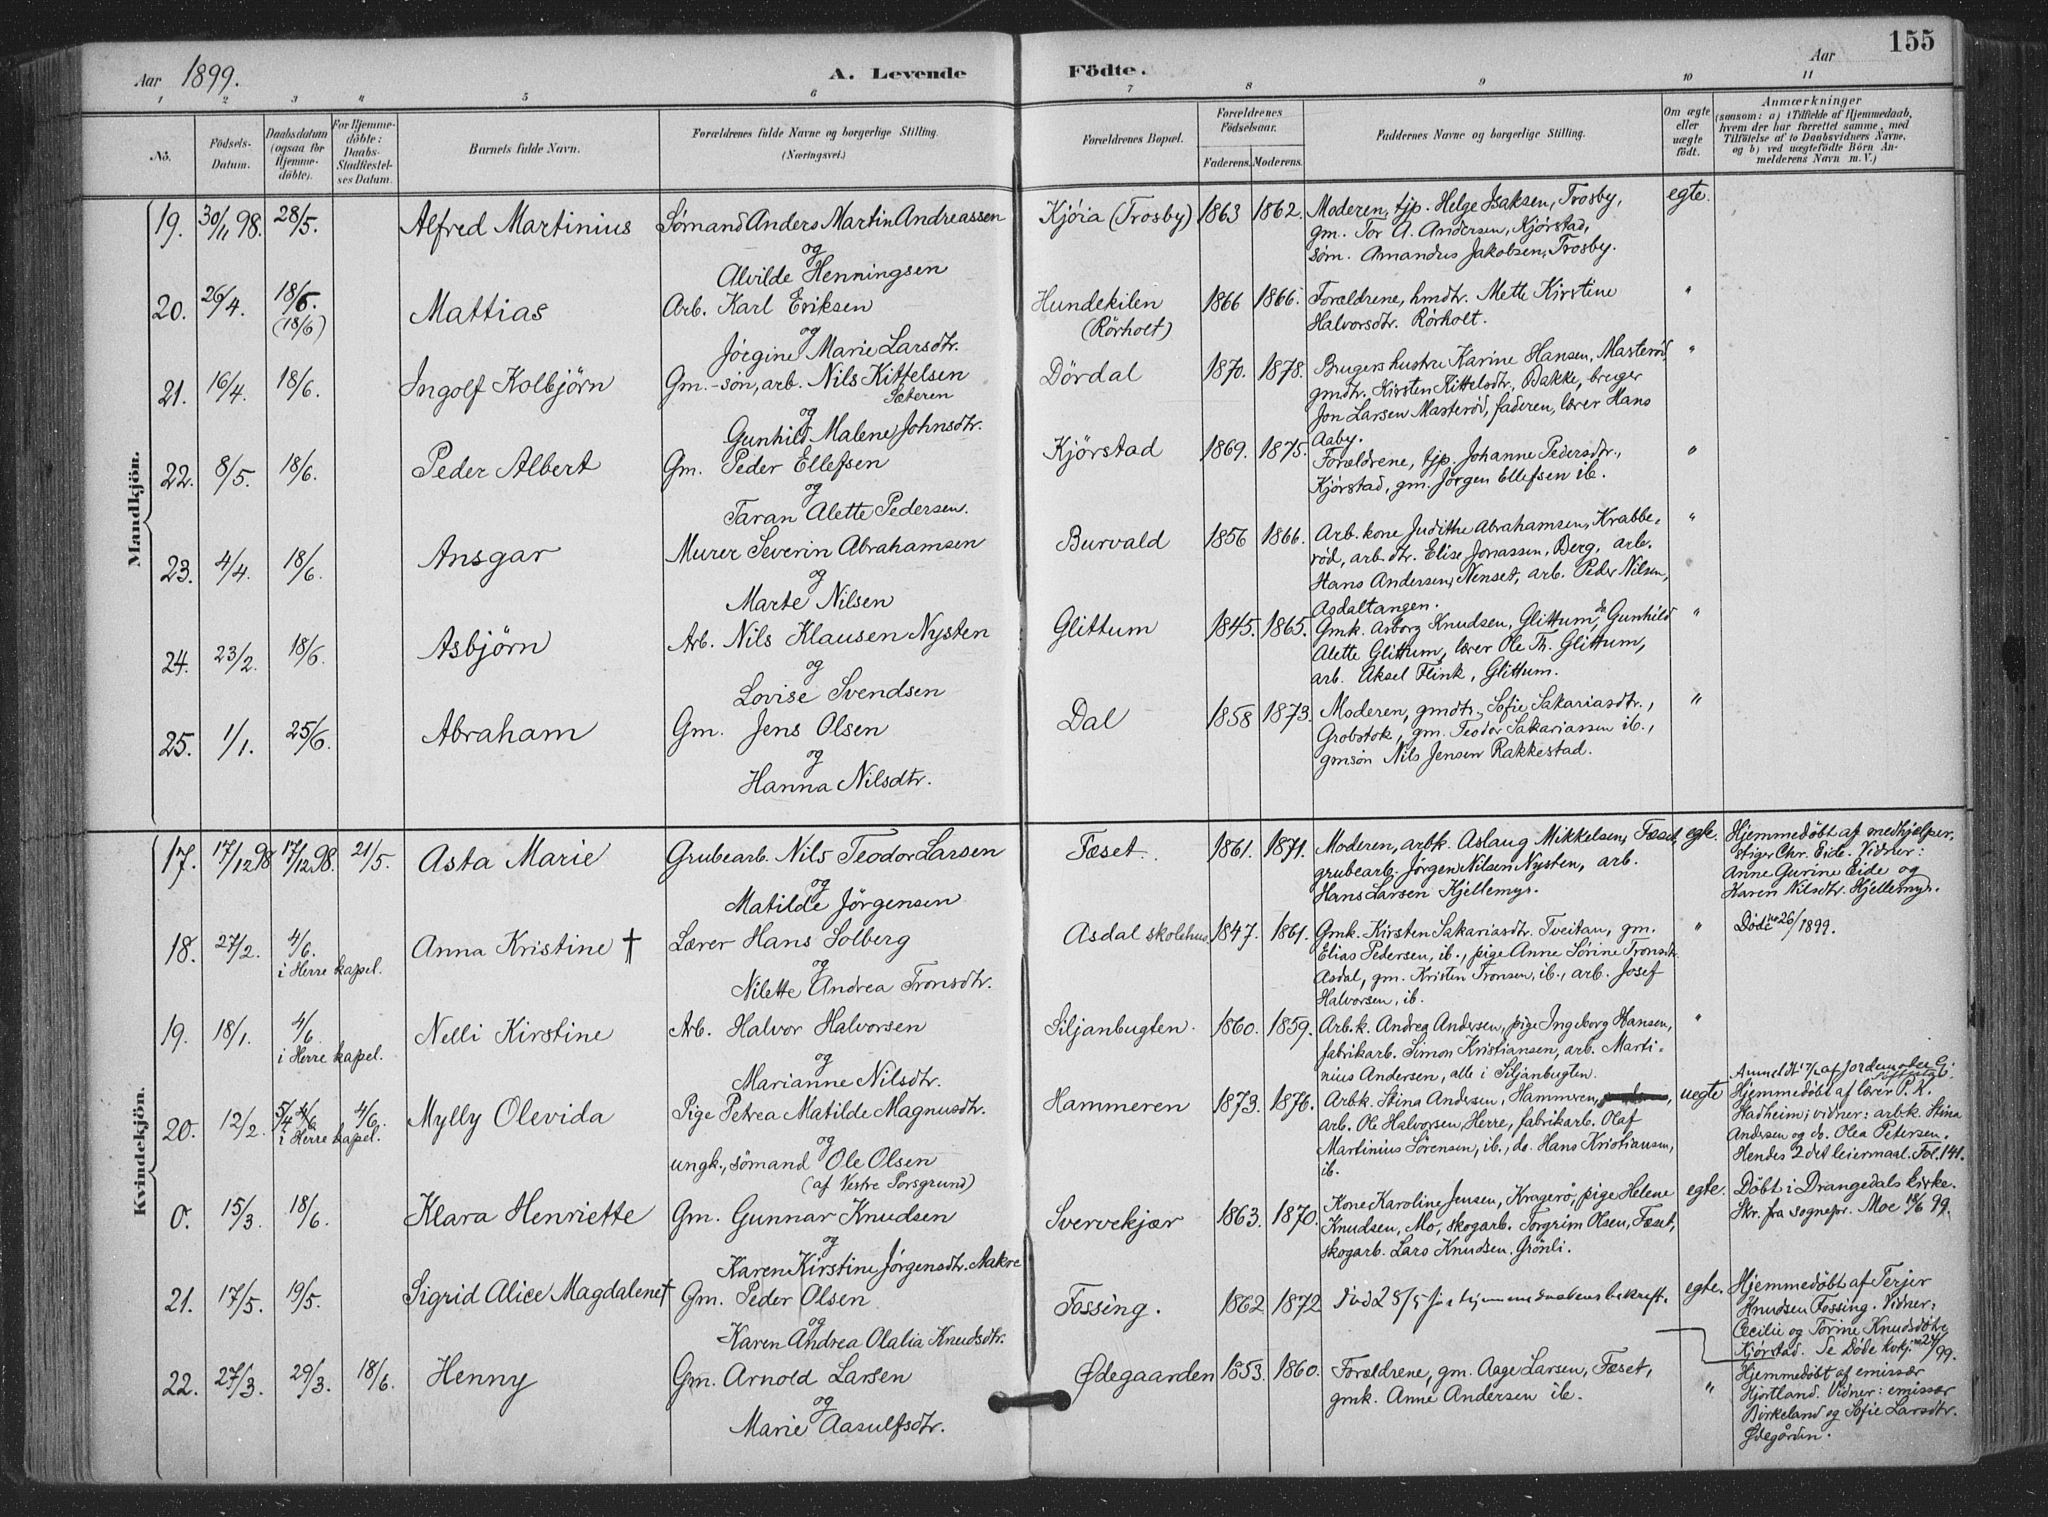 155
Aar 1899. A. Levende Födte. Aar
1 2 3 4 5 6 7 8 9 10 11
No.
Födsels-
Datum.
Daabsdatum
(ogsaa for
Hjemme-
döbte).
For Hjemme-
döbte:
Daabs-
Stadfæstel-
ses Datum.
Barnets fulde Navn.
Forældrenes fulde Navne og borgerlige Stilling.
(Næringsvei.)
Forældrenes Bopæl.
Forældrenes
Födselsaar.
Faderens. Moderens.
Faddernes Navne og borgerlige Stilling.
Om ægte
eller
uægte
födt.
Anmærkninger
(saasom: a) i Tilfælde af Hjemmedaab,
hvem der har forrettet samme, med
Tilföielse af to Daabsvidners Navne,
og b) ved uægtefödte Börn An-
melderens Navn m. V.)
Mandkjön.
19. 30/11 98. 28/5. Alfred Martinius Sømand Anders Martin Andreassen
og
Alvilde Henningsen
Kjöia (Trosby) 1863 1862. Moderen, tjp. Helge Isaksen, Trosby,
gm. Tor A. Andersen, Kjørstad,
søm. Amandus Jakobsen, Trosby.
egte.
20. 26/4. 18/6. (18/6) Mattias Arb. Karl Eriksen
og
Jörgine Marie Larsdtr.
Hundekilen
(Rörholt)
1866 1866. Forældrene, hmdtr. Mette Kirstine
Halvorsdtr. Rörholt.
"
21. 16/4. 18/6. Ingolf Kolbjörn Gm.-søn, arb. Nils Kittelsen
Sæteren
og
Gunhild Malene Johnsdtr.
Dördal 1870. 1878. Brugers hustru Karine Hansen, Masteröd
gmdtr. Kirsten Kittelsdtr, Bakke, bruger
Jon Larsen Masteröd, faderen, lærer Hans
Aaby.
"
22. 8/5. 18/6. Peder Albert Gm. Peder Ellefsen
og
Taran Alette Pedersen.
Kjörstad 1869. 1875. Forældrene, tjp. Johanne Pedersdtr.,
Kjörstad, gm. Jörgen Ellefsen ib.
"
23. 4/4. 18/6. Ansgar Murer Severin Abrahamsen
og
Marte Nilsen
Burvald 1856 1866. Arb. kone Judithe Abrahamsen, Krabbe-
röd, arb. dtr. Elise Jonassen, Berg, arb.
Hans Andersen, Nenset, arb. Peder Nilsen,
Asdaltangen.
"
24. 23/2. 18/6. Asbjörn Arb. Nils Klausen Nysten
og
Lovise Svendsen
Glittum 1845. 1865. Gmk. Asborg Knudsen, Glittum, do Gunhild
Alette Glittum, lærer Ole Th. Glittum,
arb. Aksel Flink, Glittum.
"
25. 1/1. 25/6. Abraham Gm. Jens Olsen
og
Hanna Nilsdtr.
Dal 1858 1873. Moderen, gmdtr. Sofie Sakariasdtr.,
Grobstok, gm. Teodor Sakariassen ib.,
gmsön Nils Jensen Rakkestad.
"
Kvindekjön.
17. 17/12 98 17/12 98. 21/5. Asta Marie Grubearb. Nils Teodor Larsen
og
Matilde Jörgensen
Fæset. 1861. 1871. Moderen, arbk. Aslaug Mikkelsen, Fæset,
grubearb. Jørgen Nilsen Nysten, arb.
Hans Larsen Kjellemyr.
egte. Hjemmedöbt af medhjælper,
stiger Chr. Eide. Vidner:
Anne Gurine Eide og
Karen Nilsdtr. Kjellemyr.
18. 27/2. 4/6. i Herre kapel. Anna Kristine † Lærer Hans Solberg
og
Nilette Andrea Tronsdtr.
Asdal skolehus 1847. 1861. Gmk. Kirsten Sakariasdtr. Tveitan, gm.
Elias Pedersen, ib., pige Anne Sörine Tronsdtr.
Asdal, gm. Kristen Tronsen, ib., arb. Josef
Halvorsen, ib.
" Döde no 26/1899.
19. 18/1. 4/6. i Herre kapel. Nelli Kirstine Arb. Halvor Halvorsen
og
Marianne Nilsdtr.
Siljanbugten. 1860. 1859. Arb.k. Andrea Andersen, pige Ingeborg Hansen,
fabrikarb. Simon Kristiansen, arb. Marti-
nius Andersen, alle i Siljanbugten.
"
20. 12/2. 5/4 4/6. i Herre kapel. 4/6. Mylly Olevida Pige Petrea Matilde Magnusdtr.
og
ungk., sömand Ole Olsen
(af Vestre Porsgrund)
Hammeren 1873. 1876. Arbk. Stina Andersen, Hammeren,
arb. Ole Halvorsen, Herre, fabrikarb. Olaf
Martinius Sörensen, ib., do. Hans Kristiansen,
ib.
uegte Hjemmedöbt af lærer P. K.
Hadheim; vidner: arbk. Stina
Andersen og do. Olea Petersen.
Hendes 2det leiermaal. Fol. 141.
0. 15/3. 18/6. Klara Henriette Gm. Gunnar Knudsen
og
Karen Kirstine Jörgensdtr. Aakre
Svervekjær 1863. 1870. Kone Karoline Jensen, Kragerö, pige Helene
Knudsen, Mo, skogarb. Torgrim Olsen, Fæset,
skogarb. Lars Knudsen. Grönli.
egte. Döbt i Drangedals kirke.
Skr. fra sognepr. Moe 18/6 99.
21. 17/5. 19/5. Sigrid Alice Magdalene † Gm. Peder Olsen
og
Karen Andrea Olalia Knudsdtr.
Fossing. 1862 1872 Död 28/5 før hjemmedaaben bekræft.
egte. Hjemmedöbt af Terjer
Knudsen Fossing. Vidner:
Cecilie og Torine Knudsdötre
Kjörstad. Se Döde kvkj. no 24/99.
22. 27/3. 29/3. 18/6. Henny Gm. Arnold Larsen
og
Marie Aasulfsdtr.
Ødegaarden 1853. 1860. Forældrene, gm. Aage Larsen, Fæset,
gmk. Anne Andersen ib.
" Hjemmedöbt af emissær
Hjortland. Vidner: emissær
Birkeland og Sofie Larsdtr.
Ødegården.